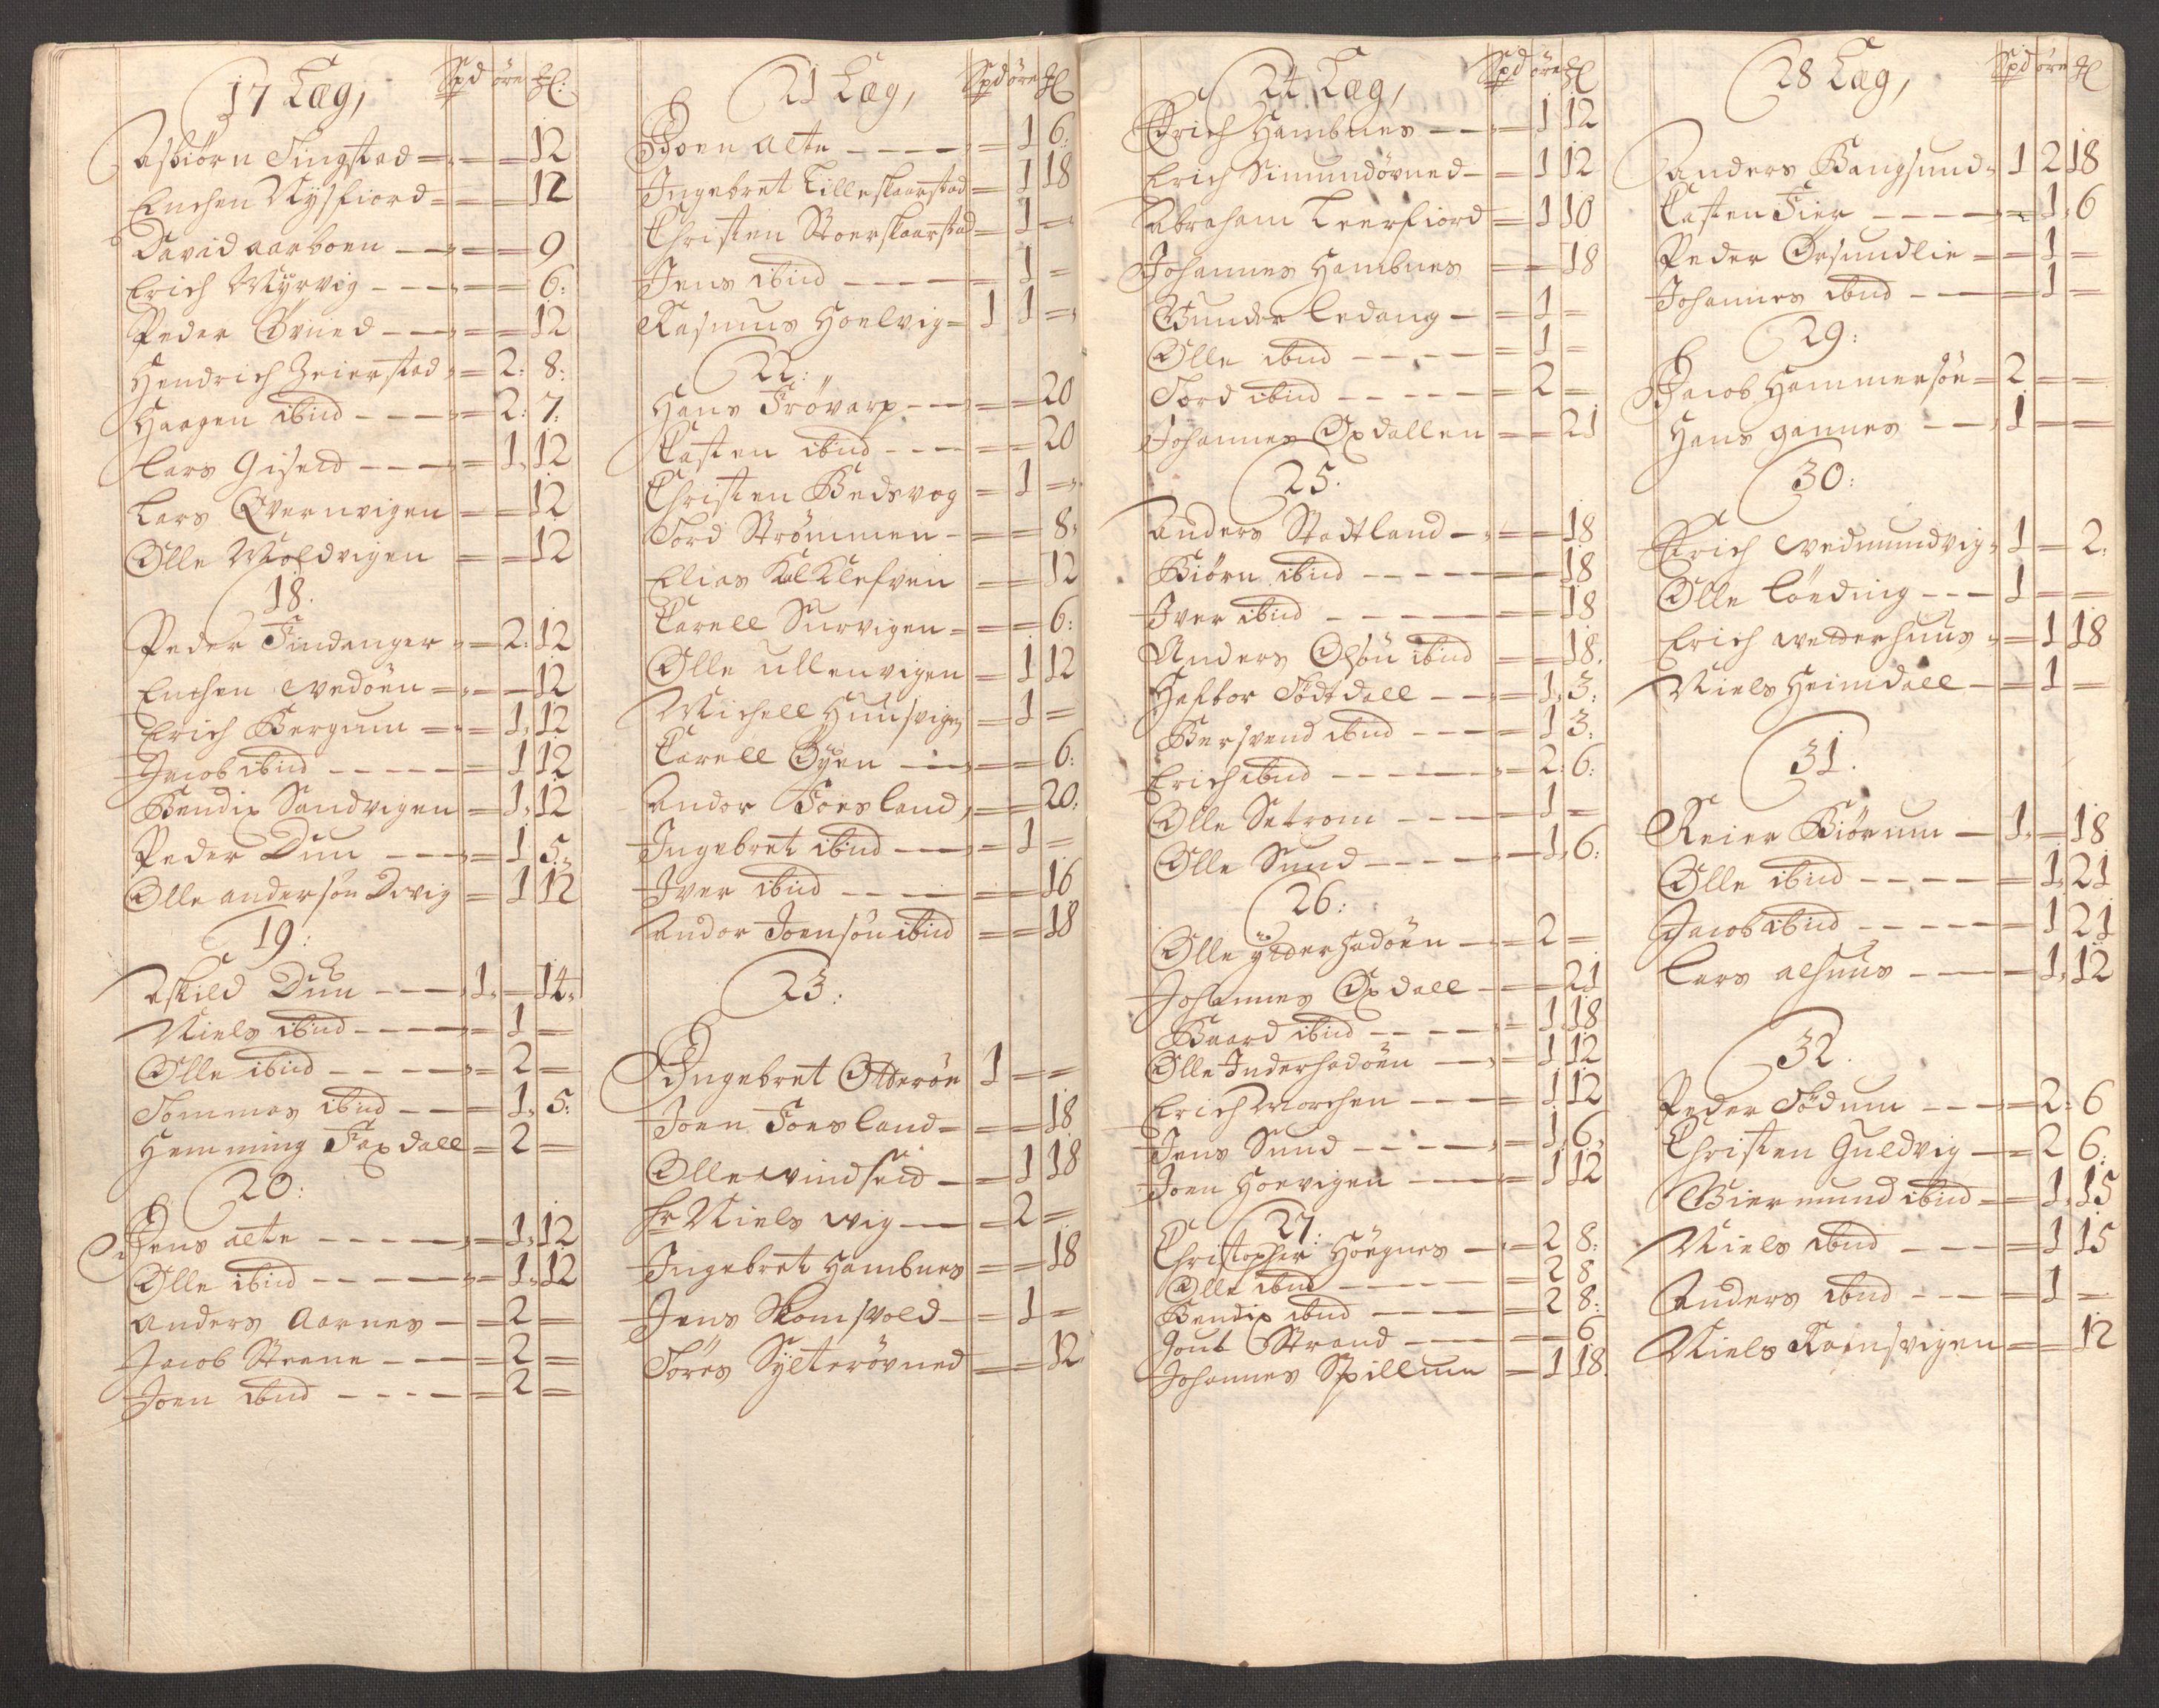 17 Læg, Spd öre ₰:
Asbiörn Tingstad = - = = 12
Enchen Nysfiord = = = 12
David aarboen - - = = 9
Erich Myrvig - - - = = 6:
Peder Övned - - - = = 12
Hendrich Zeierstad = 2: 8:
Haagen ibid - - - = 2: 7:
Lars Giseid - - - = 1, 12
Lars Qvernvigen = = 12
Olle Moldvigen = = 12
18.
Peder Findanger = 2: 12
Enchen wedöen = - - 12
Erich Bergum = = 1, 12
Jacob ibid - - - - = 1 12
Bendix Sandvigen = 1, 12
Peder Dun - - - = 1 5:
Olle andersön Dvig = 1 12
19:
Askild Dun - - - 1, - 14,
Niels ibid - - - - = 1 =
Olle ibid - - - - = 2 =
Tommas ibid - - = 1, 5:
Hemming Faxdall = 2 =
20:
Jens alte - - - - = 1, 12
Olle ibid - - - - = 1, 12
Anders Aarnes - = 2 =
Jacob Steene - - = 2 =
Joen ibid - - - - = 2 =
21 Læg, Spd öre ₰
Joen alte - - - - = 1 6:
Ingebret Lilleskaarstad = 1 18
Christen Stoerskaarstad = 1 =
Jens ibid - - - - = 1 =
Rasmus Hoelvig = 1 1 =
22:
Hans Frövarp - - = = 20
Casten ibid - - - = = 20
Christen Bedsvog = 1 =
Tord Strömmen - = = 8,
Elias Kalklefven = = 12
Carell Survigen - = = 6:
Olle ullenvigen = 1 12
Michell Hunsvigen = 1 =
Carell Öyen - - - = = 6:
Andor Foesland, = = 20:
Ingebret ibid - - = 1 =
Iver ibid - - - - = = 16
Andor Joensön ibid = = 18
23:
Ingebret Otteröe 1 = =
Joen Foesland = = = 18
Olle windseid - = 1 18
Hr Niels wig - - = 2 =
Ingebret Hambnes = = 18
Jens Skomsvold - = 1 =
Törés Sylterövned = = 12
24 Læg, Spd öre ₰
Erich Hambnes - - = 1 12
Erich Simundövned - = 1 12
Abraham Leerfiord = 1 10
Johannes Hambnes = = 18
Gunder Ledang - = 1 =
Olle ibid - - - - = 1 =
Tord ibid - - - - = 2 =
Johannes Oxdallen = = 21
25.
Anders Stadtland - = = 18
Biörn ibid - - - - = = 18
Iver ibid - - - - = = 18
Anders Olsön ibid = = 18.
Hafbor Födtdall - - = 1, 3:
Bersvend ibid - - - = 1 3:
Erich ibid - - - - = 2: 6:
Olle Setrom - - - - 1 =
Olle Sund - - - - - 1, 6:
26:
Olle ytterhadöen - - = 2 =
Johannes Oxdall - - = 21
Baard ibid - - - - = 1 18
Olle Inderhadöen - - = 1 12
Erich Morchen - - - = 1 12
Jens Sund - - - - = 1, 6,
Joen Hoevigen - - - = 1 12
27:
Christopher Höegnes - = 2 8:
Olle ibid - - - - = 2 8
Bendix ibid - - - = 2 8:
Jout Strand - - - = = 6
Johannes Spillum = 1 18.
28 Læg, Spd öre ₰
Anders Bangsund = 1 2 18
Casten Fier - - - - = 1, 6
Peder Örsundlie = = 1 =
Johannes ibid - - - = 1 =
29:
Jacob Hammersöe = 2 = =
Hans gannes - - - 1 = =
30:
Erich wedmundvig, 1 = 2:
Olle Löeding - - - 1 = =
Erich wetterhuus = = 1 18
Niels Heimdall - = 1 =
31.
Reier Biörum - 1, = 18
Olle ibid - - - - = 1, 21
Jacob ibid - - - - = 1 21
Lars alhuus - - - = 1, 12
32.
Peder Födum - - - = 2: 6
Christen Guldvig - = 2 6:
Giermund ibid - = 1, 15
Niels ibid - - - = 1 15
Anders ibid - - - = 1 =
Niels Ramsvigen = = 12